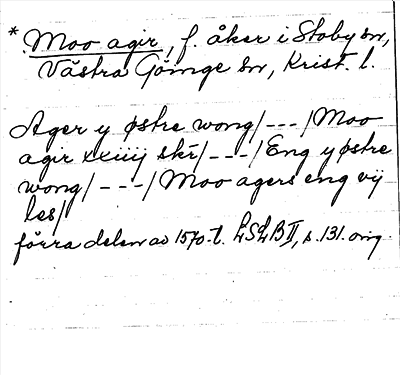 * Moo agir, f. åker i Stoby sn,
Västra Göinge hd, Krist. l.
Ager y østre wong/---/Moo
agir xxiiij skr/---/Eng y østre
wong/---/Moo agers eng vij
les/
förra delen av 1570-t. LSLB II, s. 131. orig.